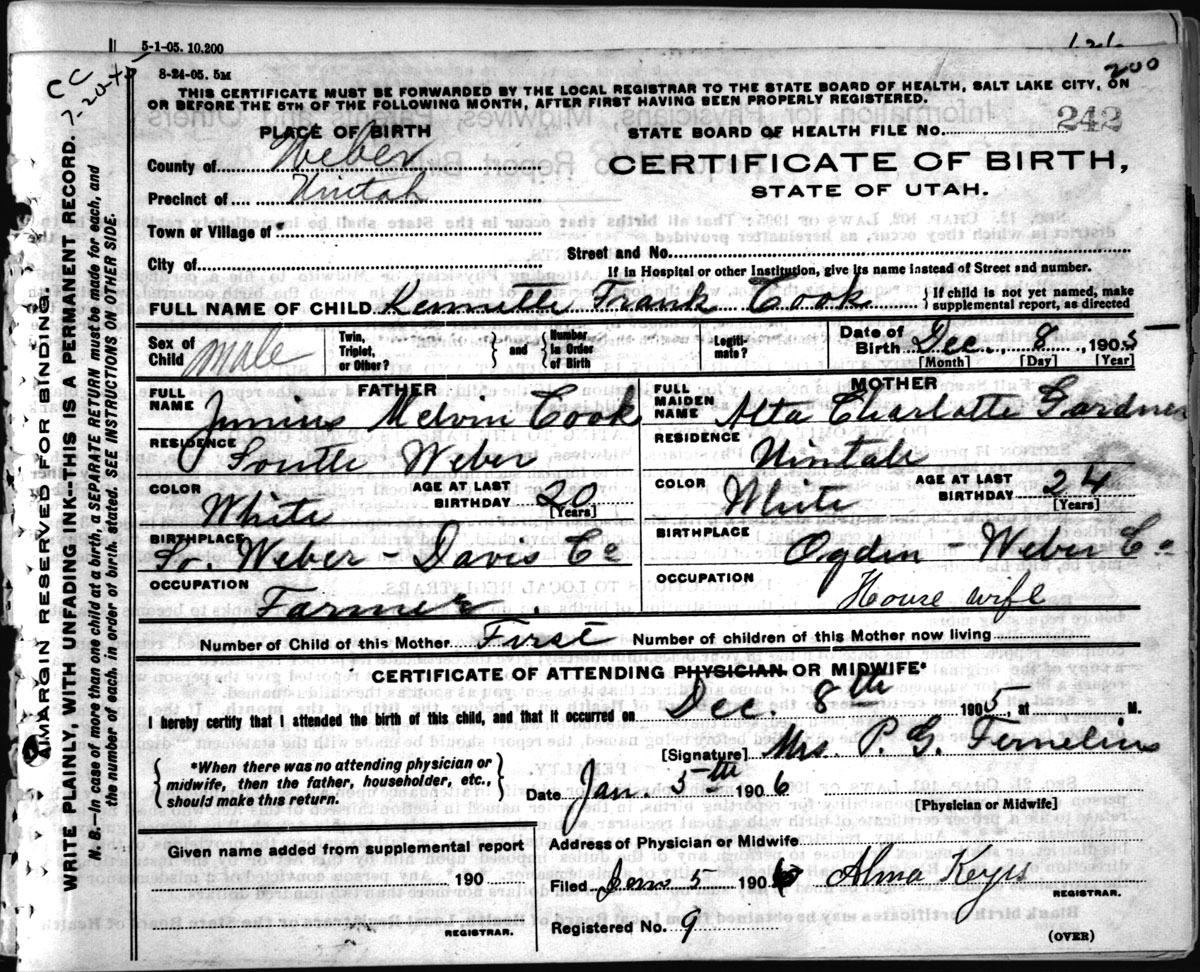 5-1-05. 10.200
8-24-05. 5M
200
THIS CERTIFICATE MUST BE FORWARDED BY THE LOCAL REGISTRAR TO THE STATE BOARD OF HEALTH, SALT LAKE CITY, ON
OR BEFORE THE 5TH OF THE FOLLOWING MONTH, AFTER FIRST HAVING BEEN PROPERLY REGISTERED.
PLACE OF BIRTH
STATE BOARD OF HEALTH FILE No. 242
County of Weber
CERTIFICATE OF BIRTH,
STATE OF UTAH.
Precinct of Uintah
Town or Village of
City of
Street and No.
If in Hospital or other Institution, give its name instead of Street and number.
FULL NAME OF CHILD Kenneth Frank Cook { If child is not yet named, make supplemental report, as directed
Sex of Child male
Twin, Triplet, or Other? } and { Number in Order of Birth
Legiti-mate?
Date of Birth Dec. 8, 1905
[Month] [Day] [Year]
FATHER
FULL NAME Junius Melvin Cook
MOTHER
FULL MAIDEN NAME Alta Charlotte Gardner
RESIDENCE South Weber
RESIDENCE Uintah
COLOR White
AGE AT LAST BIRTHDAY 20 [Years]
COLOR White
AGE AT LAST BIRTHDAY 24 [Years]
BIRTHPLACE So. Weber - Davis Co
BIRTHPLACE Ogden - Weber Co
OCCUPATION Farmer.
OCCUPATION House wife
Number of Child of this Mother First Number of children of this Mother now living
CERTIFICATE OF ATTENDING PHYSICIAN OR MIDWIFE*
I hereby certify that I attended the birth of this child, and that it occurred on Dec. 8th 1905, at M.
[Signature] Mrs P. G. Fernelius
*When there was no attending physician or
midwife, then the father, householder, etc.,
should make this return.
Date Jan. 5th 1906
[Physician or Midwife]
Given name added from supplemental report
190
REGISTRAR.
Address of Physician or Midwife
Filed Jan 5 1906 Alma Keyes
REGISTRAR.
Registered No. 9
(OVER)
MARGIN RESERVED FOR BINDING.
WRITE PLAINLY, WITH UNFADING INK--THIS IS A PERMANENT RECORD.
N. B.—In case of more than one child at a birth, a SEPARATE RETURN must be made for each, and
the number of each, in order of birth, stated. SEE INSTRUCTIONS ON OTHER SIDE.